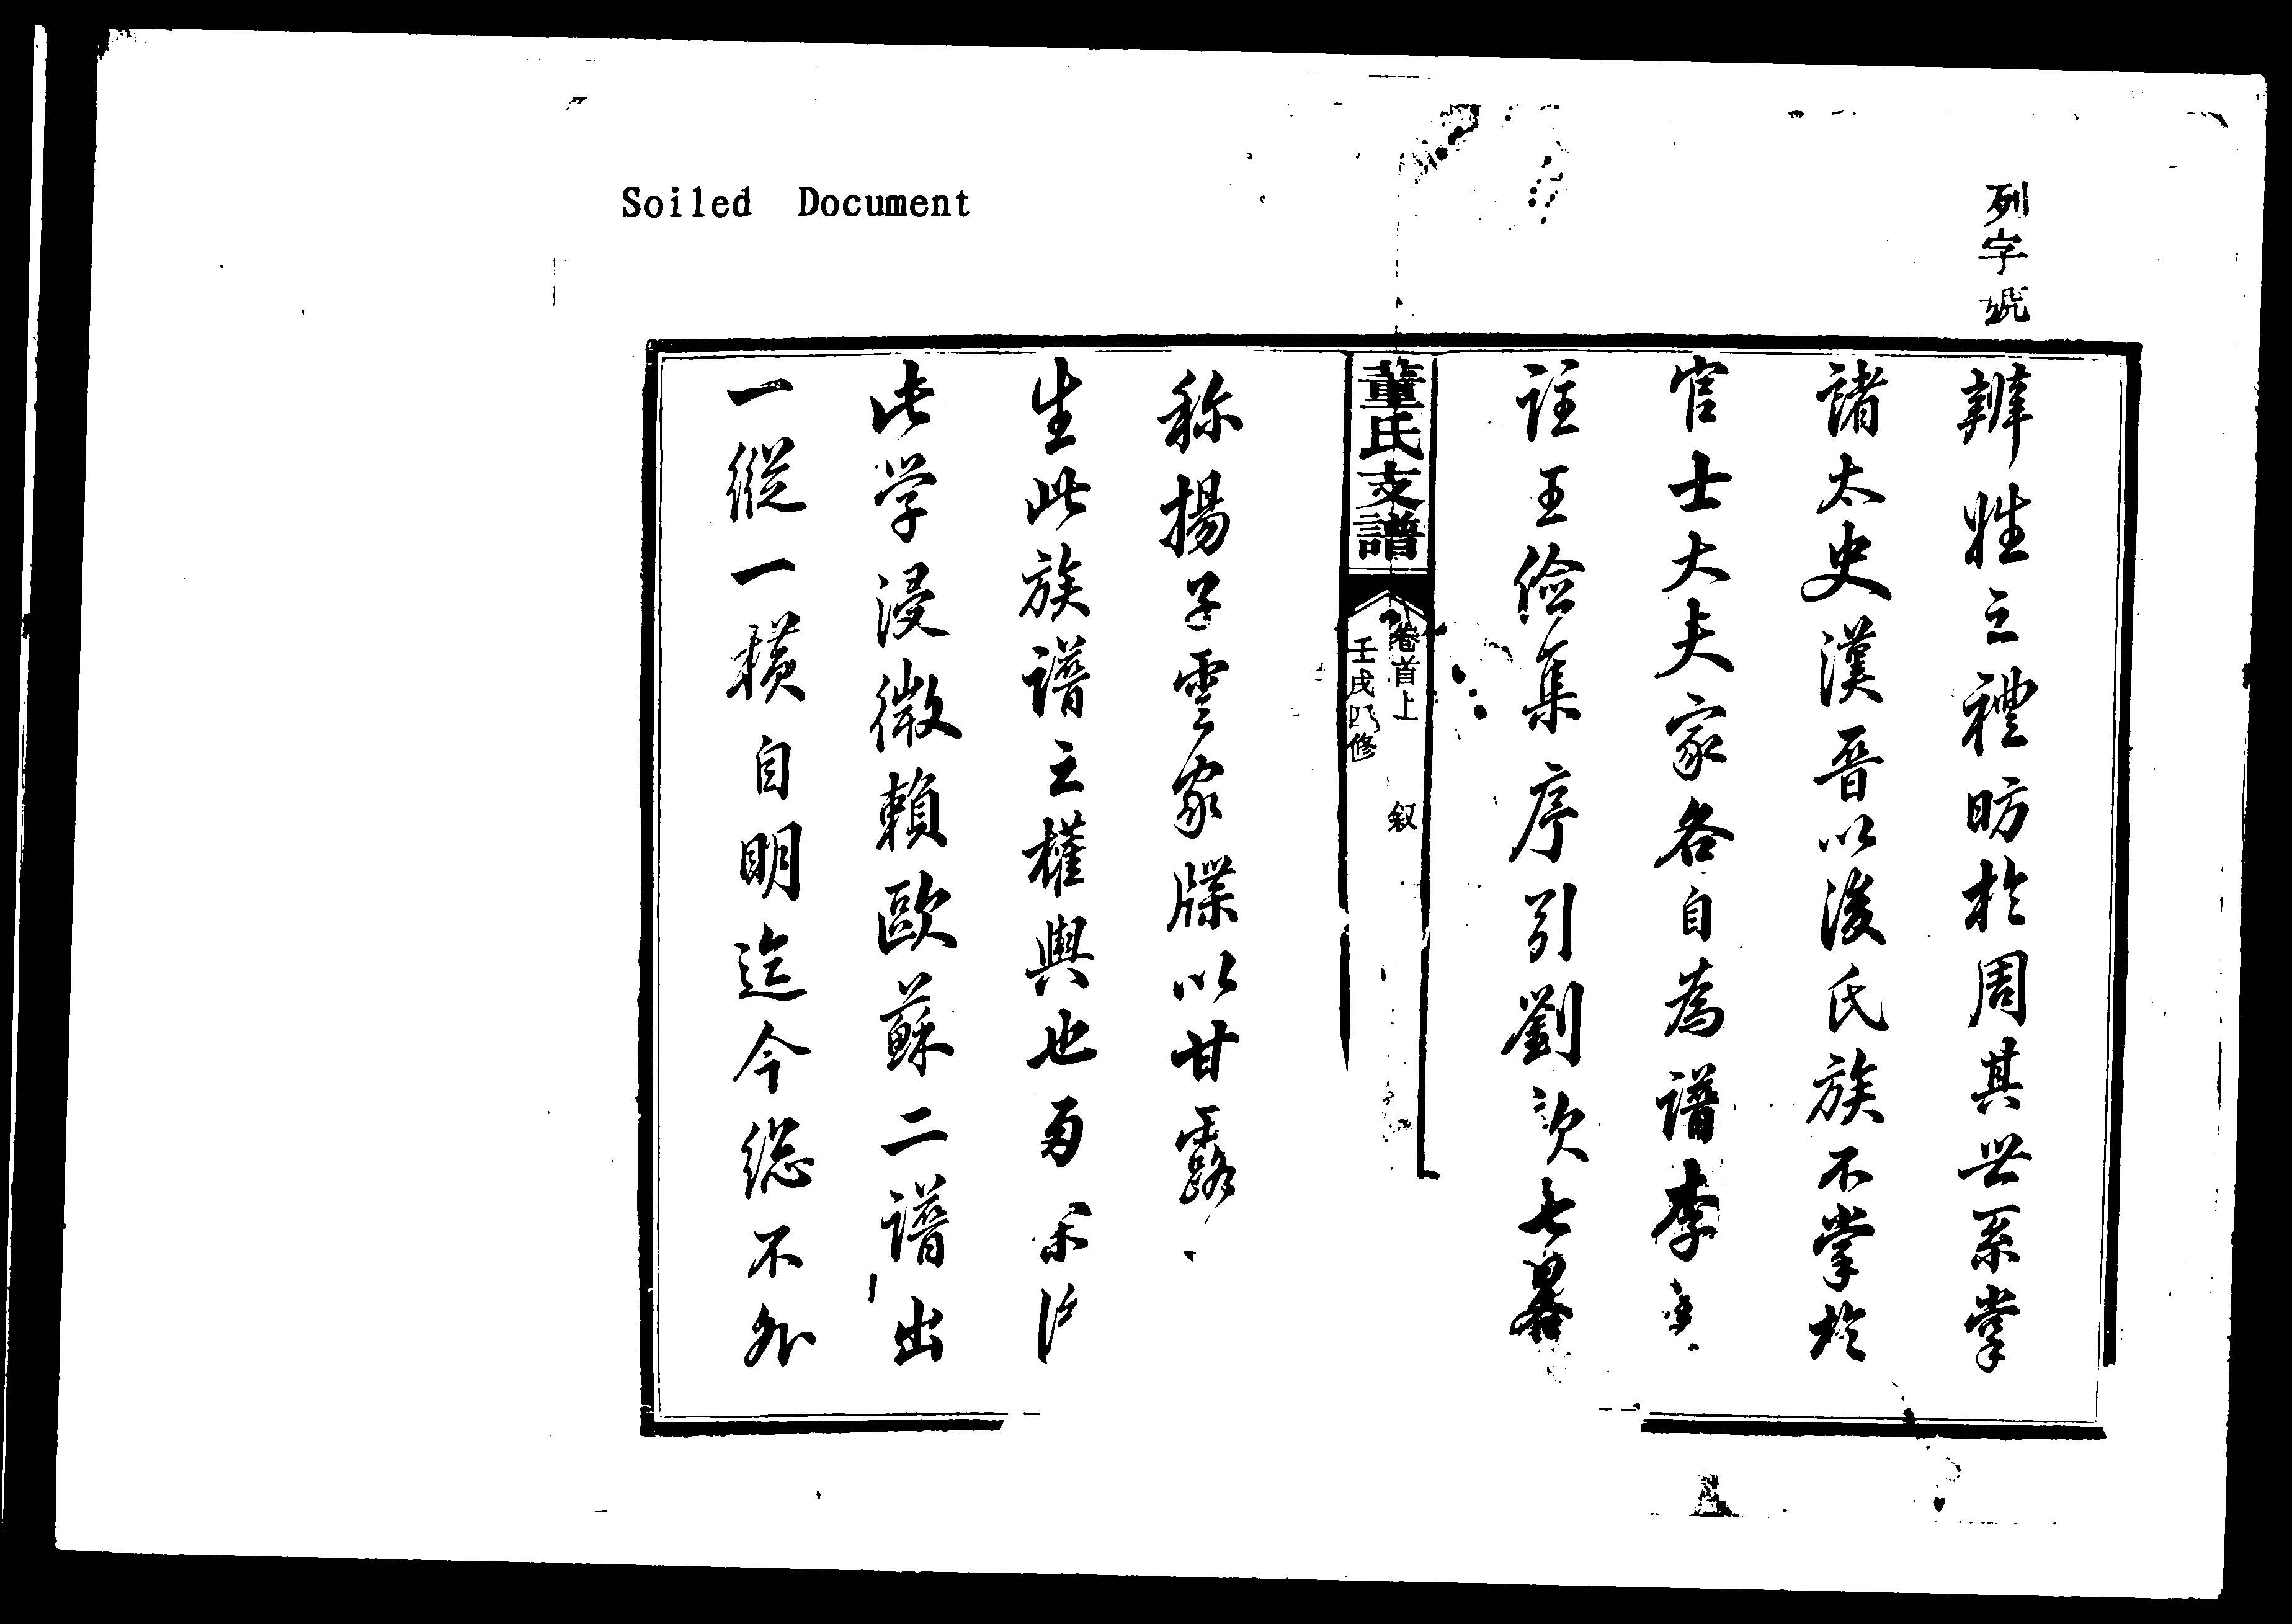 Soiled Document
列字號
辨牲之禮昉於周其世系掌
諸太史漢晉以後氏族不掌於
官士大夫家各自為譜李
註王儉集序引劉歆七畧
董氏支譜
卷首上 叙
壬戌四修
称揚子雲家牒以甘露
生此族譜之權輿也
此学浸微賴歐蘇二譜出
一縱一橫自明迄今総不外